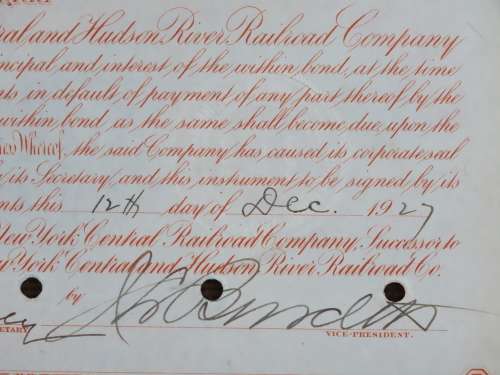 ral and Hudson River Railroad Company
ncipal and interest of the within bond, at the time
nts in default of payment of any part thereof by the
within bond as the same shall become due, upon the
ness Whereof, the said Company has caused its corporate seal
y its Secretary and this instrument to be signed by its
ents this 12th day of Dec. 1927
New York Central Railroad Company, Successor to
w York Central and Hudson River Railroad Co.
by
RETARY.
VICE-PRESIDENT.